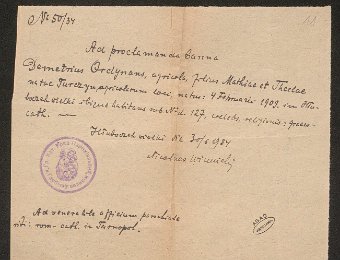 № 50/34
11
Ad proclamanda banna
Demetrius Ordynans, agricola, filius Mathiae et Theclae
natae Turczyn, agricolarum loci, natus: 4 Februarii 1909 in Hlu-
boczek wielki ibique habitans sub Nd. 127, caelebs, religionis: graeco-
cath. —
Hłuboczek wielki die 30/6 1934
Nicolaus
Ad venerabile officium parochiale
riti: rom-cath. in Tarnopol.